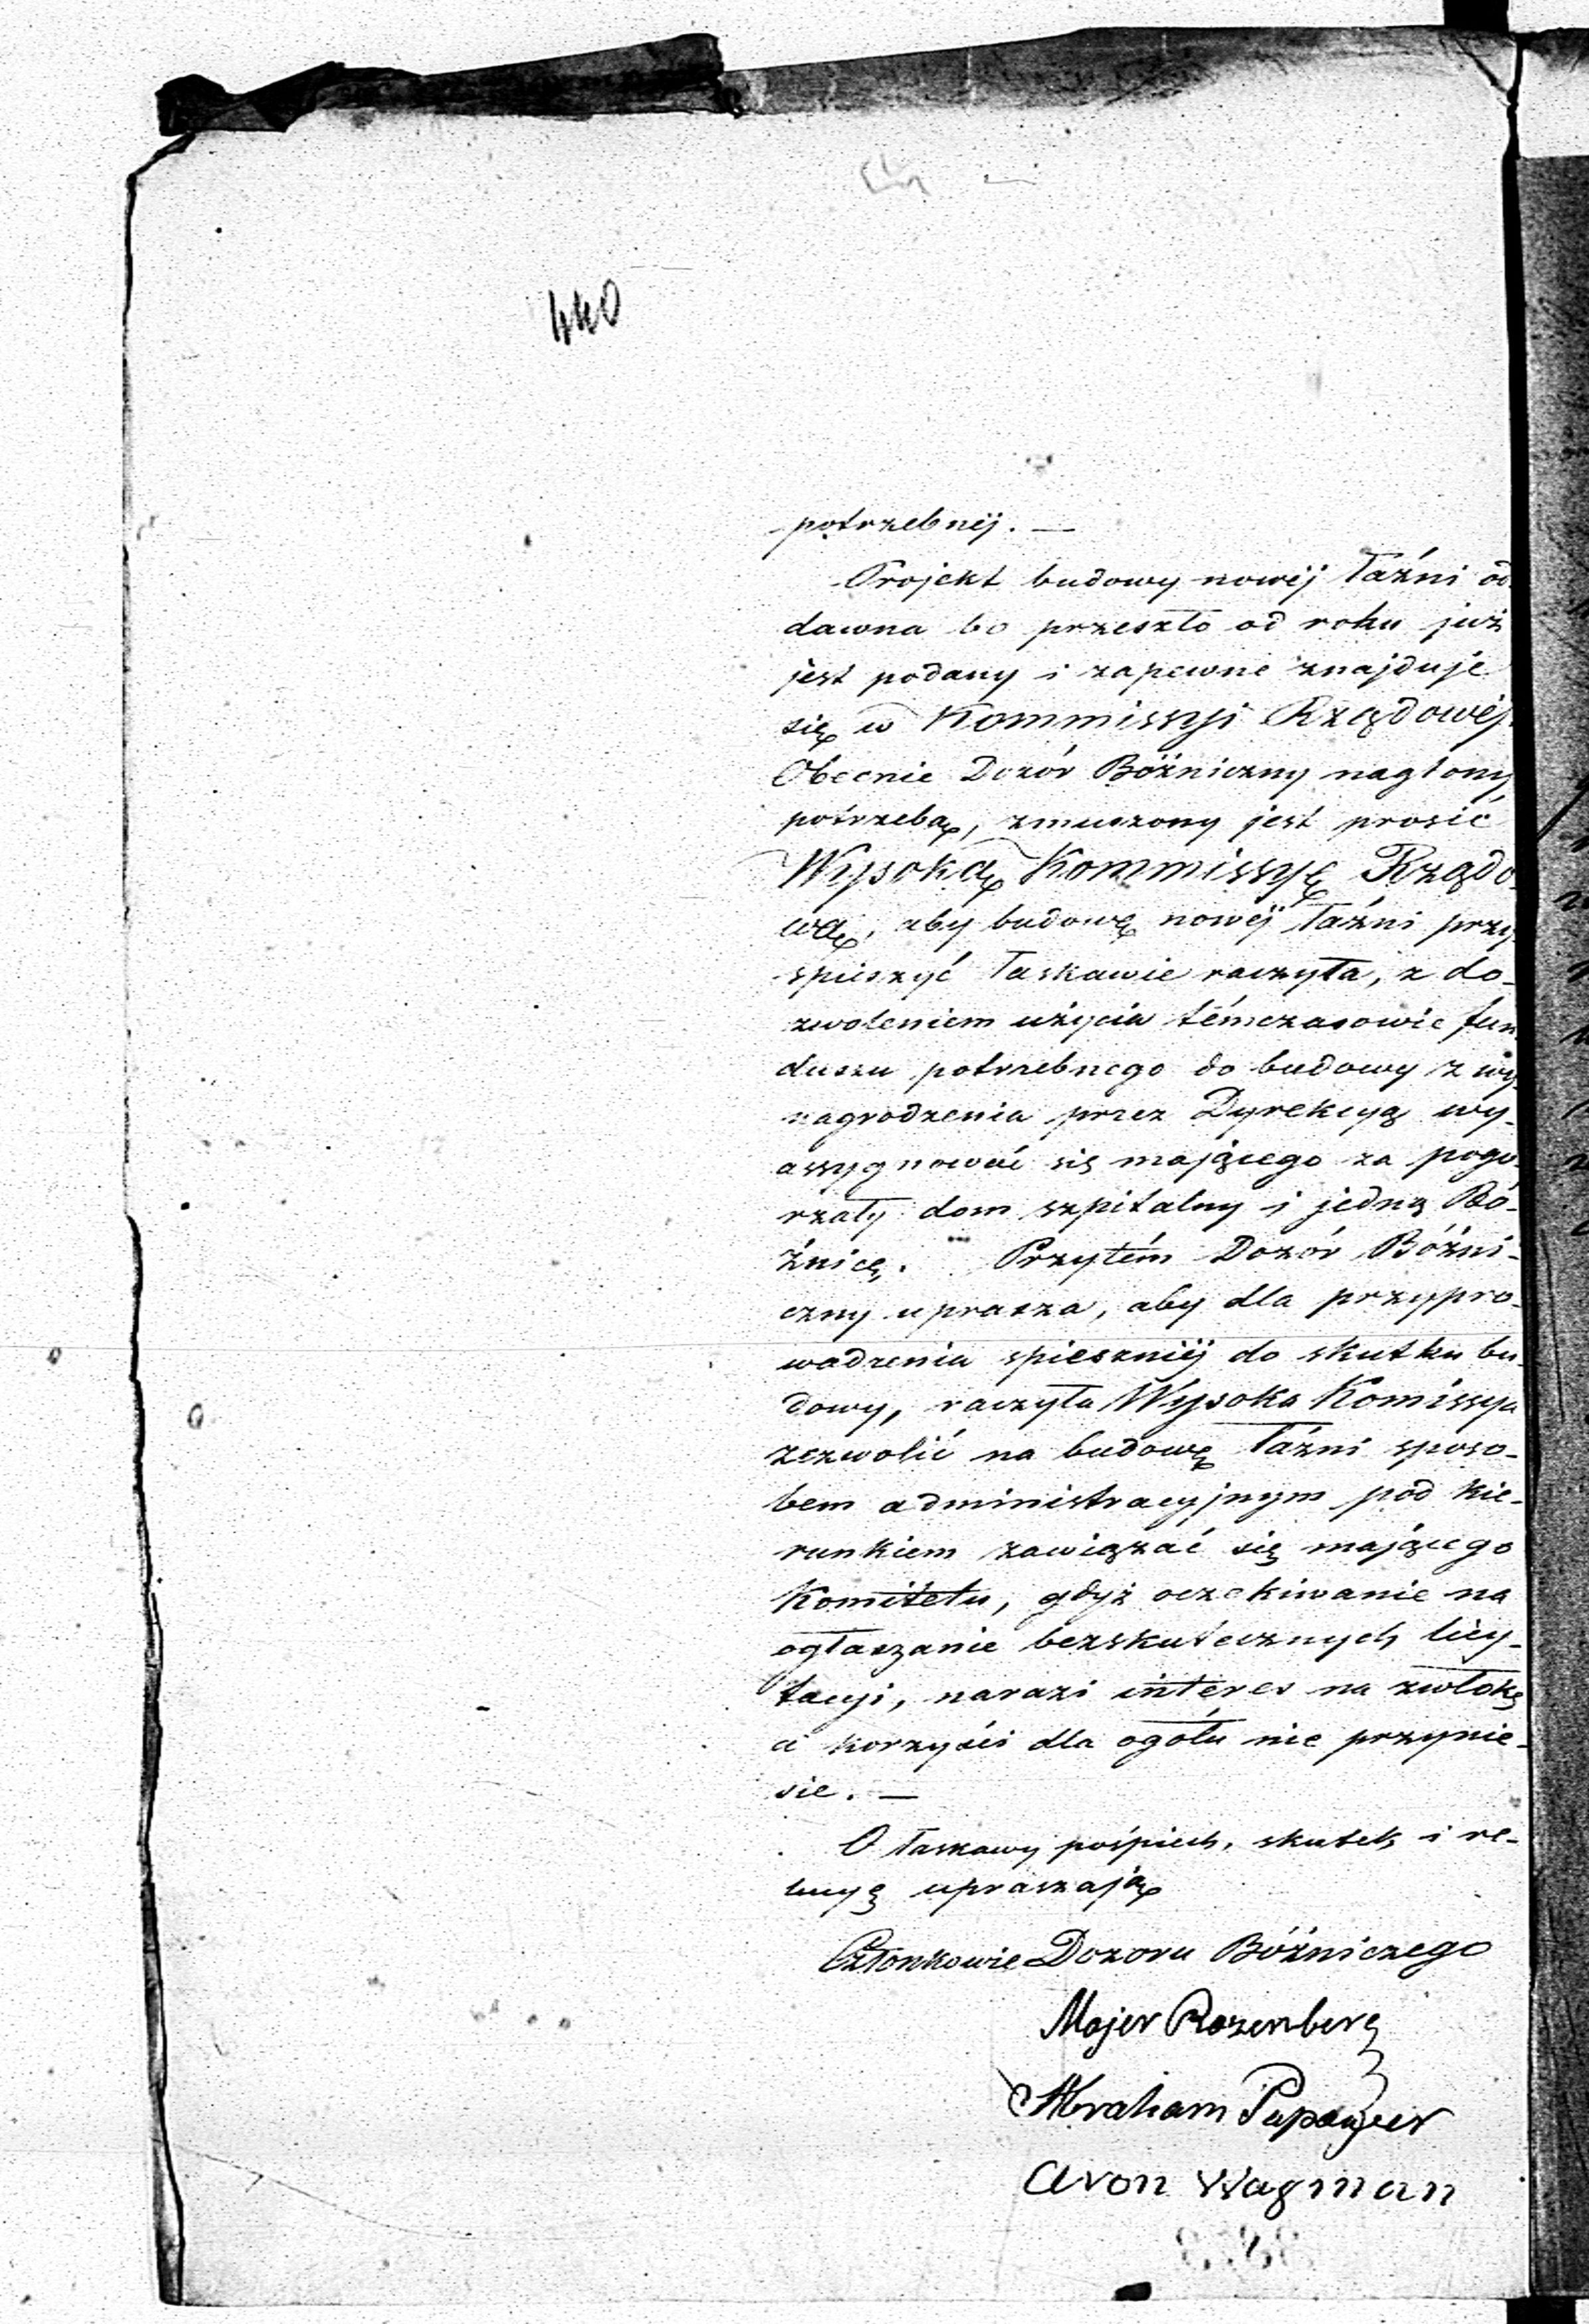 440
potrzebnéj. —
Projekt budowy nowéj łaźni od
dawna bo przeszło od roku już
jest podany i zapewne znajduje
się w Kommissyi Rządowéj.
Obecnie Dozór Bóżniczny naglony
potrzebą, zmuszony jest prosić
Wysoką Kommissyę Rządo-
wą, aby budowę nowéj łaźni przy-
spieszyć łaskawie raczyła, z do-
zwoleniem użycia témczasowie fun-
duszu potrzebnego do budowy z wy-
nagrodzenia przez Dyrekcyą wy-
assygnować się mającego za pogo-
rzały dom szpitalny i jedną Bó-
żnicę. Przytém Dozór Bóżni-
czny uprasza, aby dla przypro-
wadzenia spieszniéj do skutku bu-
dowy, raczyła Wysoka Komissya
zezwolić na budowę łaźni sposo-
bem administracyjnym pod kie-
runkiem zawiązać się mającego
Komitetu, gdyż oczekiwanie na
ogłaszanie bezskutecznych licy-
tacyi, narazi interes na zwłokę
a korzyści dla ogółu nie przynie-
sie. —
O łaskawy pośpiech, skutek i re-
lucyę upraszają
Członkowie Dozoru Bóżniczego
Majer Rozenberg
Abraham
Aron Wagman